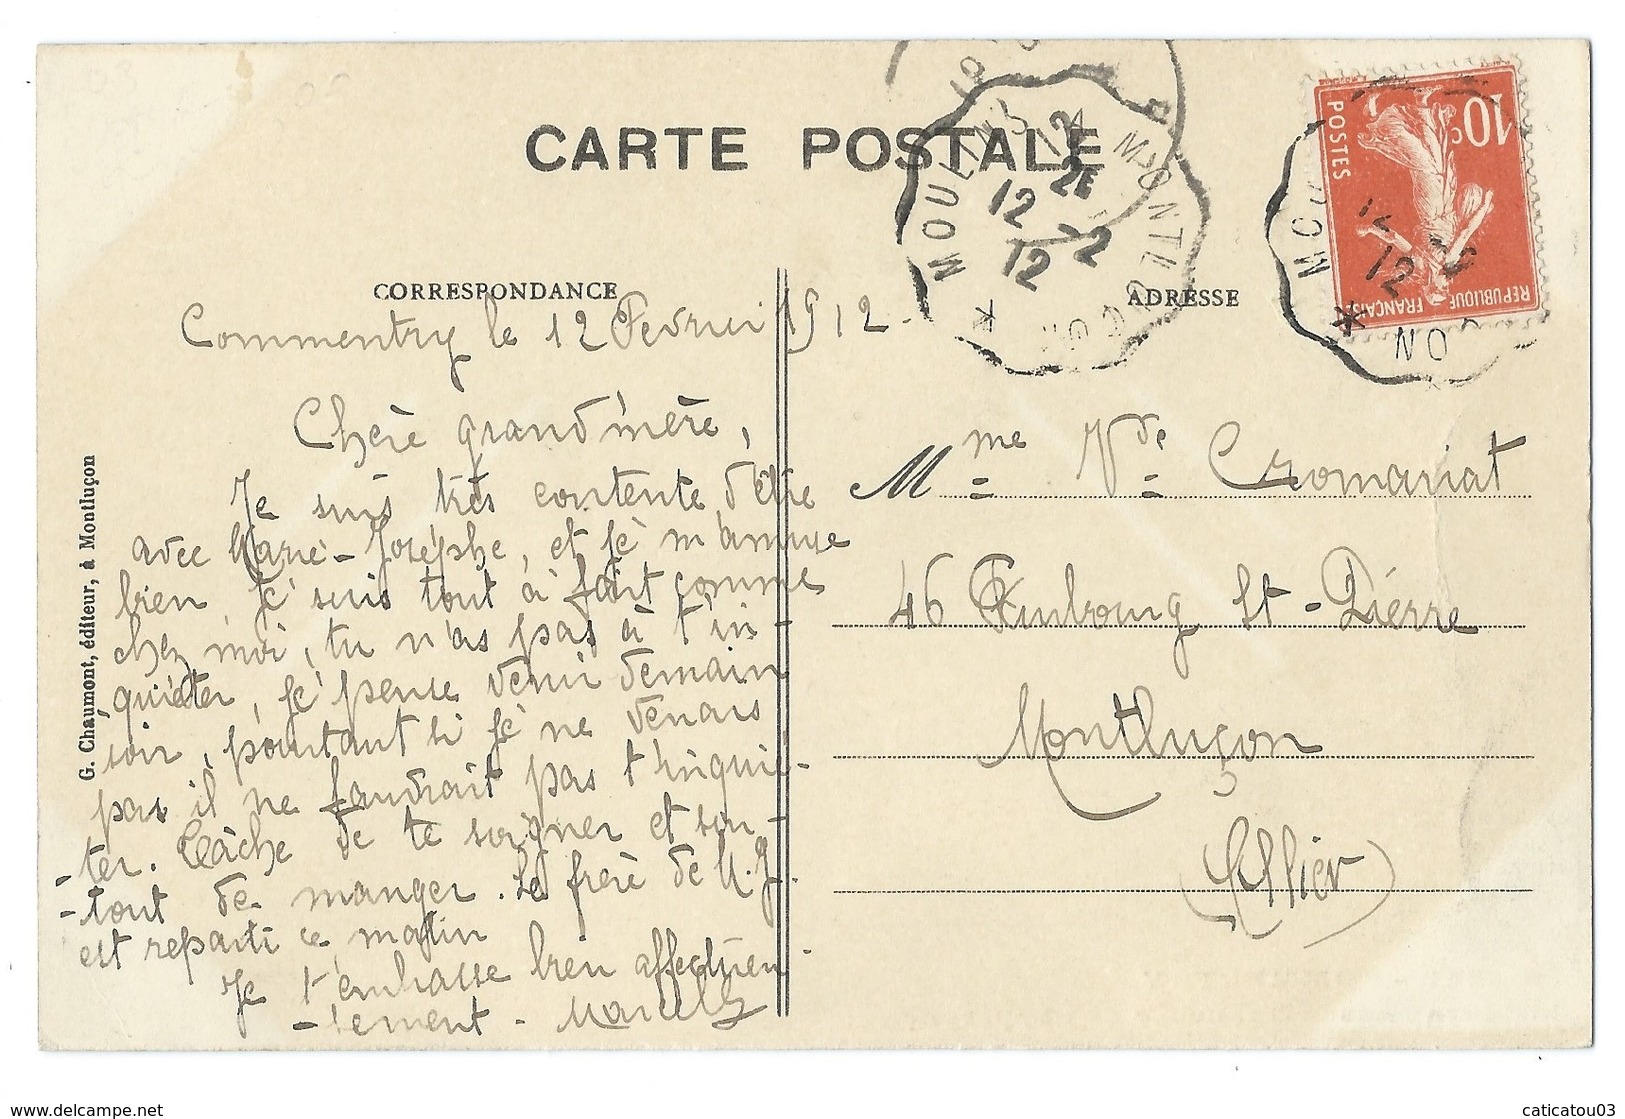 CARTE POSTALE
CORRESPONDANCE
ADRESSE
MOULINS A MONTLUÇON
12 2E
12 - 2
12
10c
POSTES
REPUBLIQUE FRANÇAISE
Commentry le 12 Février 1912.
Chère grand'mère,
Je suis très contente d'être
avec Marie-Josèphe, et je m'amuse
bien, je suis tout à fait comme
chez moi, tu n'as pas à t'in-
quiéter, je pense venir demain
soir, pourtant si je ne venais
pas il ne faudrait pas t'inquié-
-ter. Tâche de te soigner et sur-
-tout de manger. Le frère de M. J.
est reparti ce matin
Je t'embrasse bien affectueu-
-sement - Marcelle
Mme Vve Cromariat
46 Faubourg St-Pierre
Montluçon
(Allier)
G. Chaumont, éditeur, à Montluçon
www.delcampe.net
caticatou03